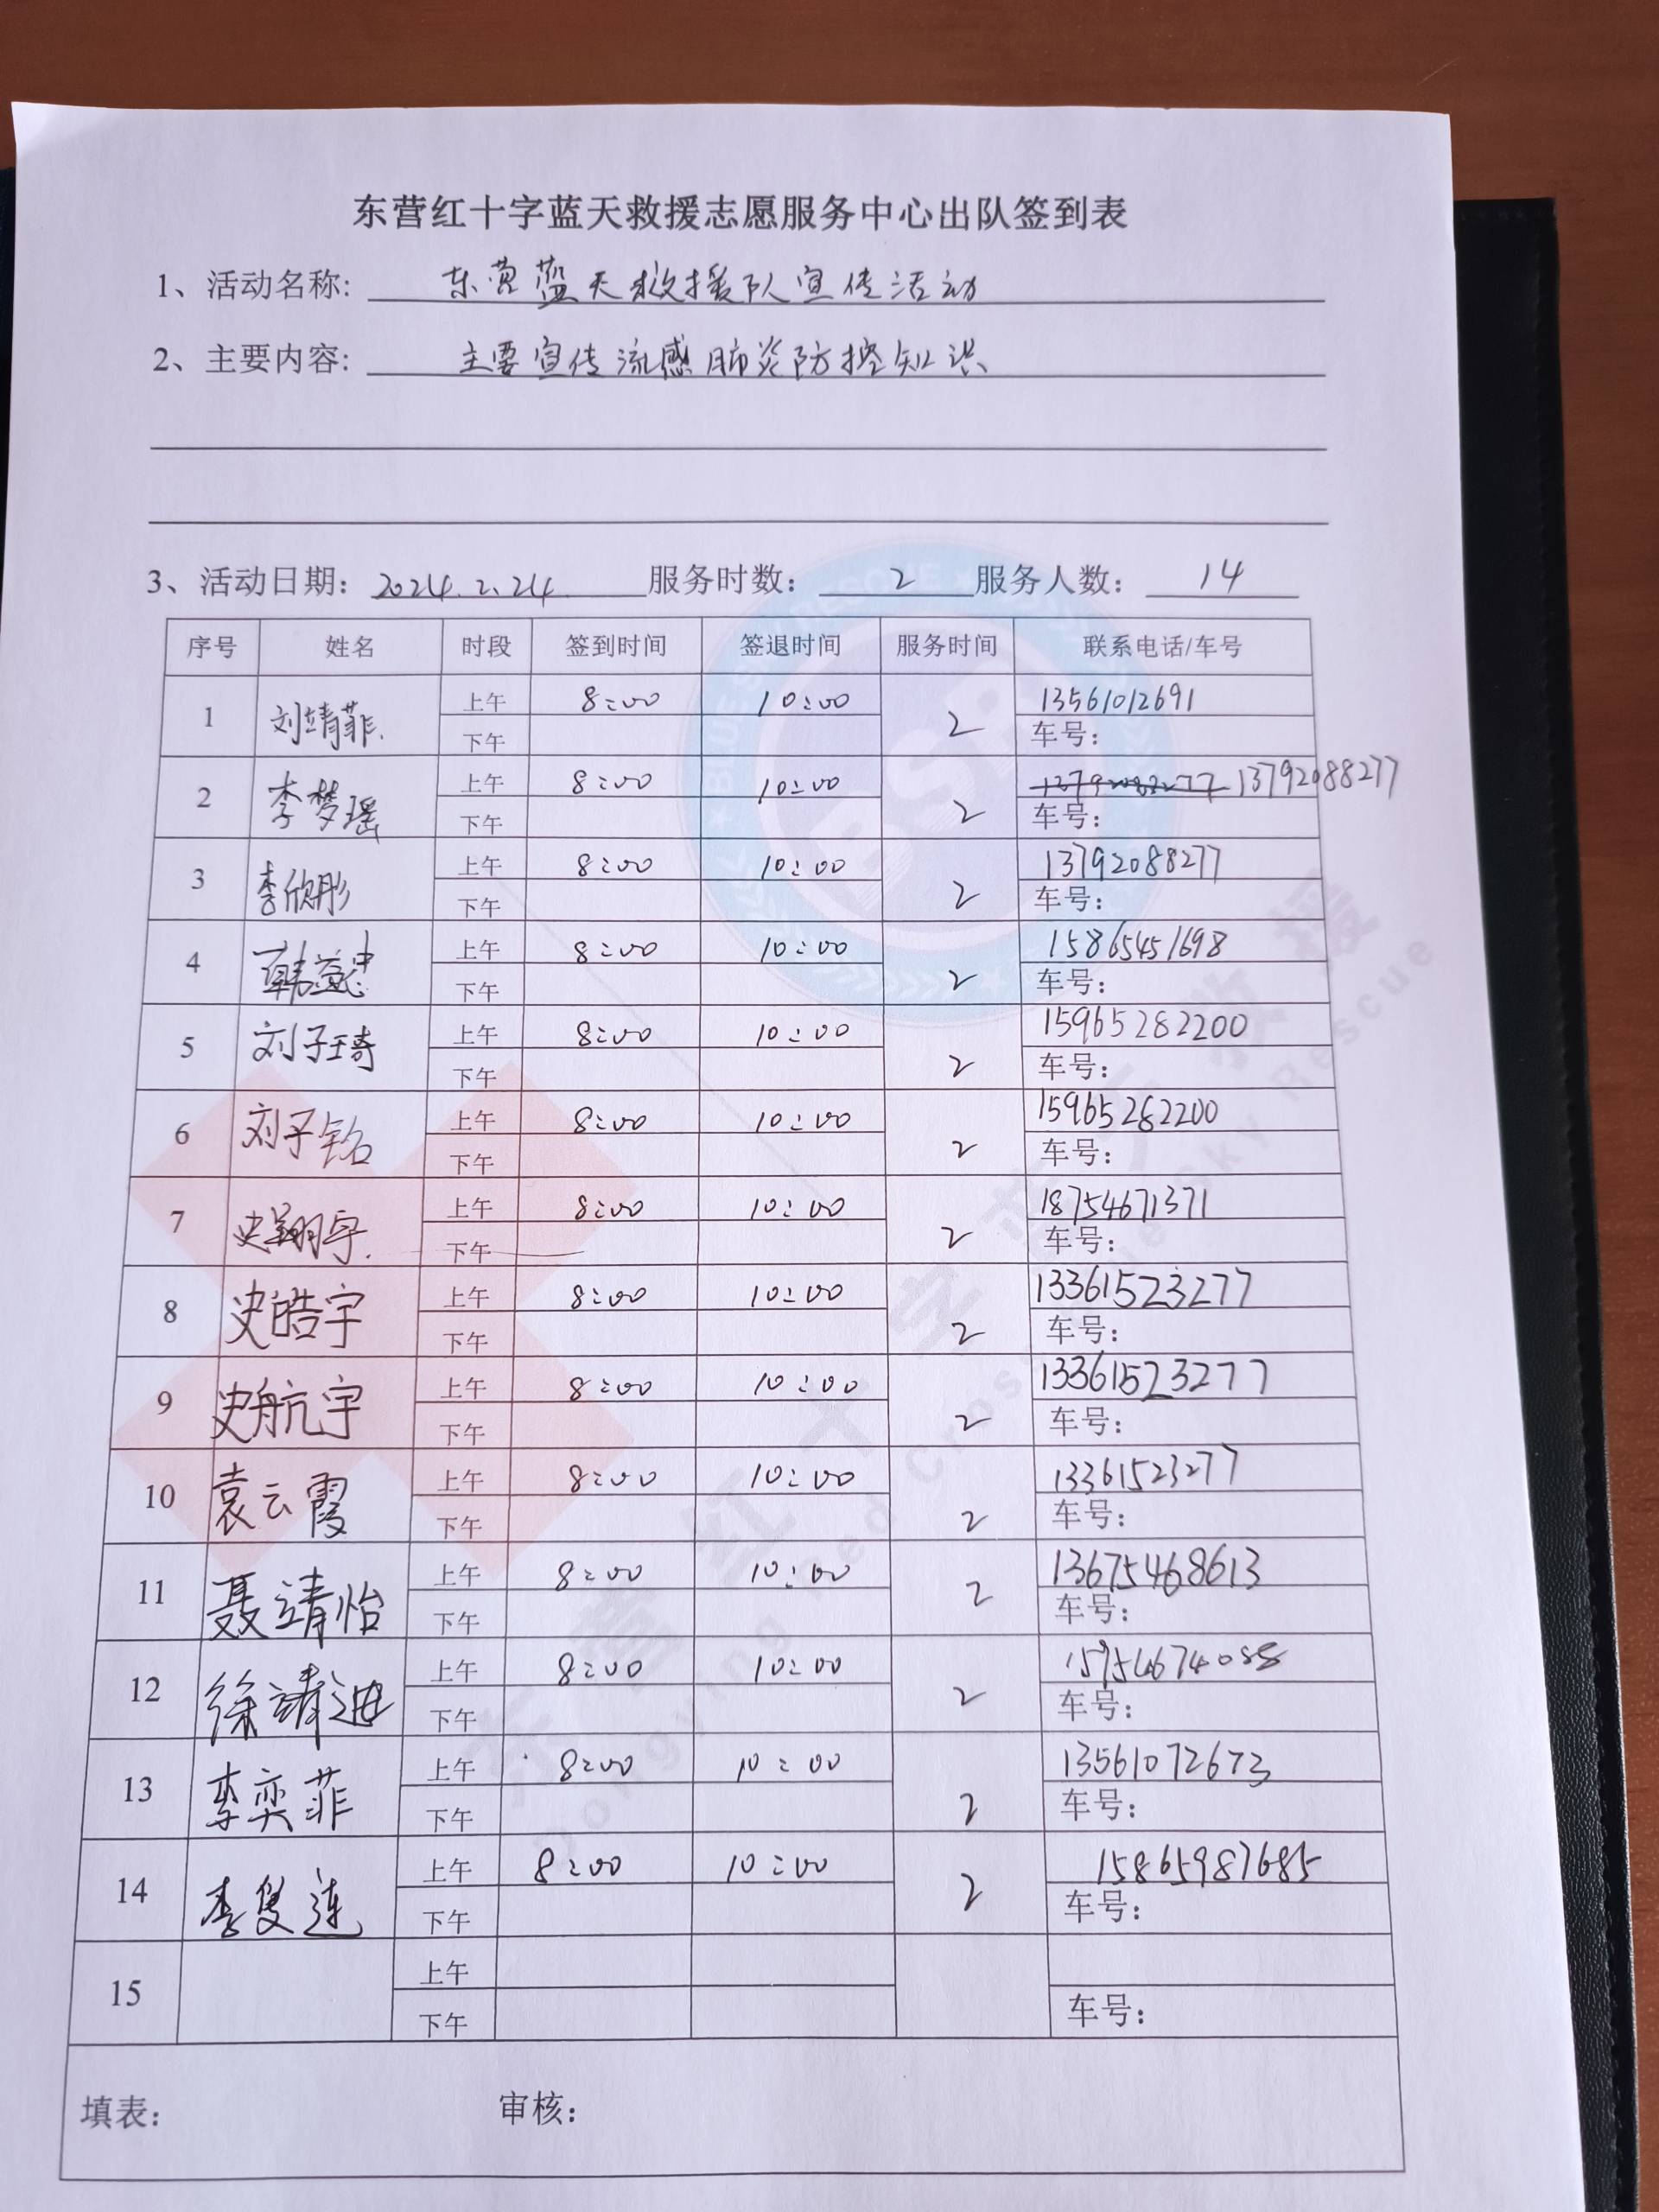 东营红十字蓝天救援志愿服务中心出队签到表
1、活动名称: 东营蓝天救援队宣传活动
2、主要内容: 主要宣传流感肺炎防控知识
3、活动日期: 2024.2.24 服务时数: 2 服务人数: 14
序号 姓名 时段 签到时间 签退时间 服务时间 联系电话/车号
1 刘靖菲. 上午 8:00 10:00 2 13561012691
下午 车号:
2 李梦瑶 上午 8:00 10:00 2 13792088277
下午 车号:
3 李欣彤 上午 8:00 10:00 2 13792088277
下午 车号:
4 韩 上午 8:00 10:00 2 15865451698
下午 车号:
5 刘子琦 上午 8:00 10:00 2 15965282200
下午 车号:
6 刘子铭 上午 8:00 10:00 2 15965282200
下午 车号:
7 史翔宇. 上午 8:00 10:00 2 18754671371
下午 车号:
8 史皓宇 上午 8:00 10:00 2 13361523277
下午 车号:
9 史航宇 上午 8:00 10:00 2 13361523277
下午 车号:
10 袁云霞 上午 8:00 10:00 2 13361523277
下午 车号:
11 聂靖怡 上午 8:00 10:00 2 13675468613
下午 车号:
12 徐靖 上午 8:00 10:00 2
下午 车号:
13 李奕菲 上午 8:00 10:00 2 13561072673
下午 车号:
14 李隻连 上午 8:00 10:00 2 15865987685
下午 车号:
15 上午
下午 车号:
填表: 审核:
BLUE SKY RESCUE
BSR
东营红十字蓝天救援
Dongying Red Cross Blue Sky Rescue